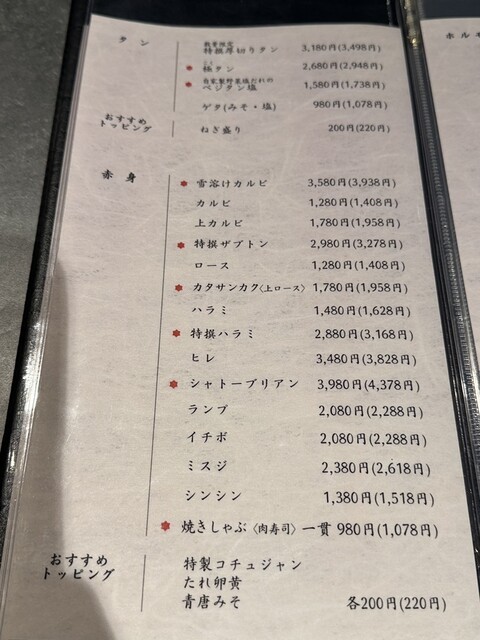 タン
数量限定
特撰厚切りタン 3,180円(3,498円)
極タン 2,680円(2,948円)
自家製野菜塩だれの
ベジタン塩 1,580円(1,738円)
ゲタ(みそ・塩) 980円(1,078円)
おすすめ
トッピング
ねぎ盛り 200円(220円)
赤身
雪溶けカルビ 3,580円(3,938円)
カルビ 1,280円(1,408円)
上カルビ 1,780円(1,958円)
特撰ザブトン 2,980円(3,278円)
ロース 1,280円(1,408円)
カタサンカク〈上ロース〉 1,780円(1,958円)
ハラミ 1,480円(1,628円)
特撰ハラミ 2,880円(3,168円)
ヒレ 3,480円(3,828円)
シャトーブリアン 3,980円(4,378円)
ランプ 2,080円(2,288円)
イチボ 2,080円(2,288円)
ミスジ 2,380円(2,618円)
シンシン 1,380円(1,518円)
焼きしゃぶ〈肉寿司〉一貫 980円(1,078円)
おすすめ
トッピング
特製コチュジャン
たれ卵黄
青唐みそ 各200円(220円)